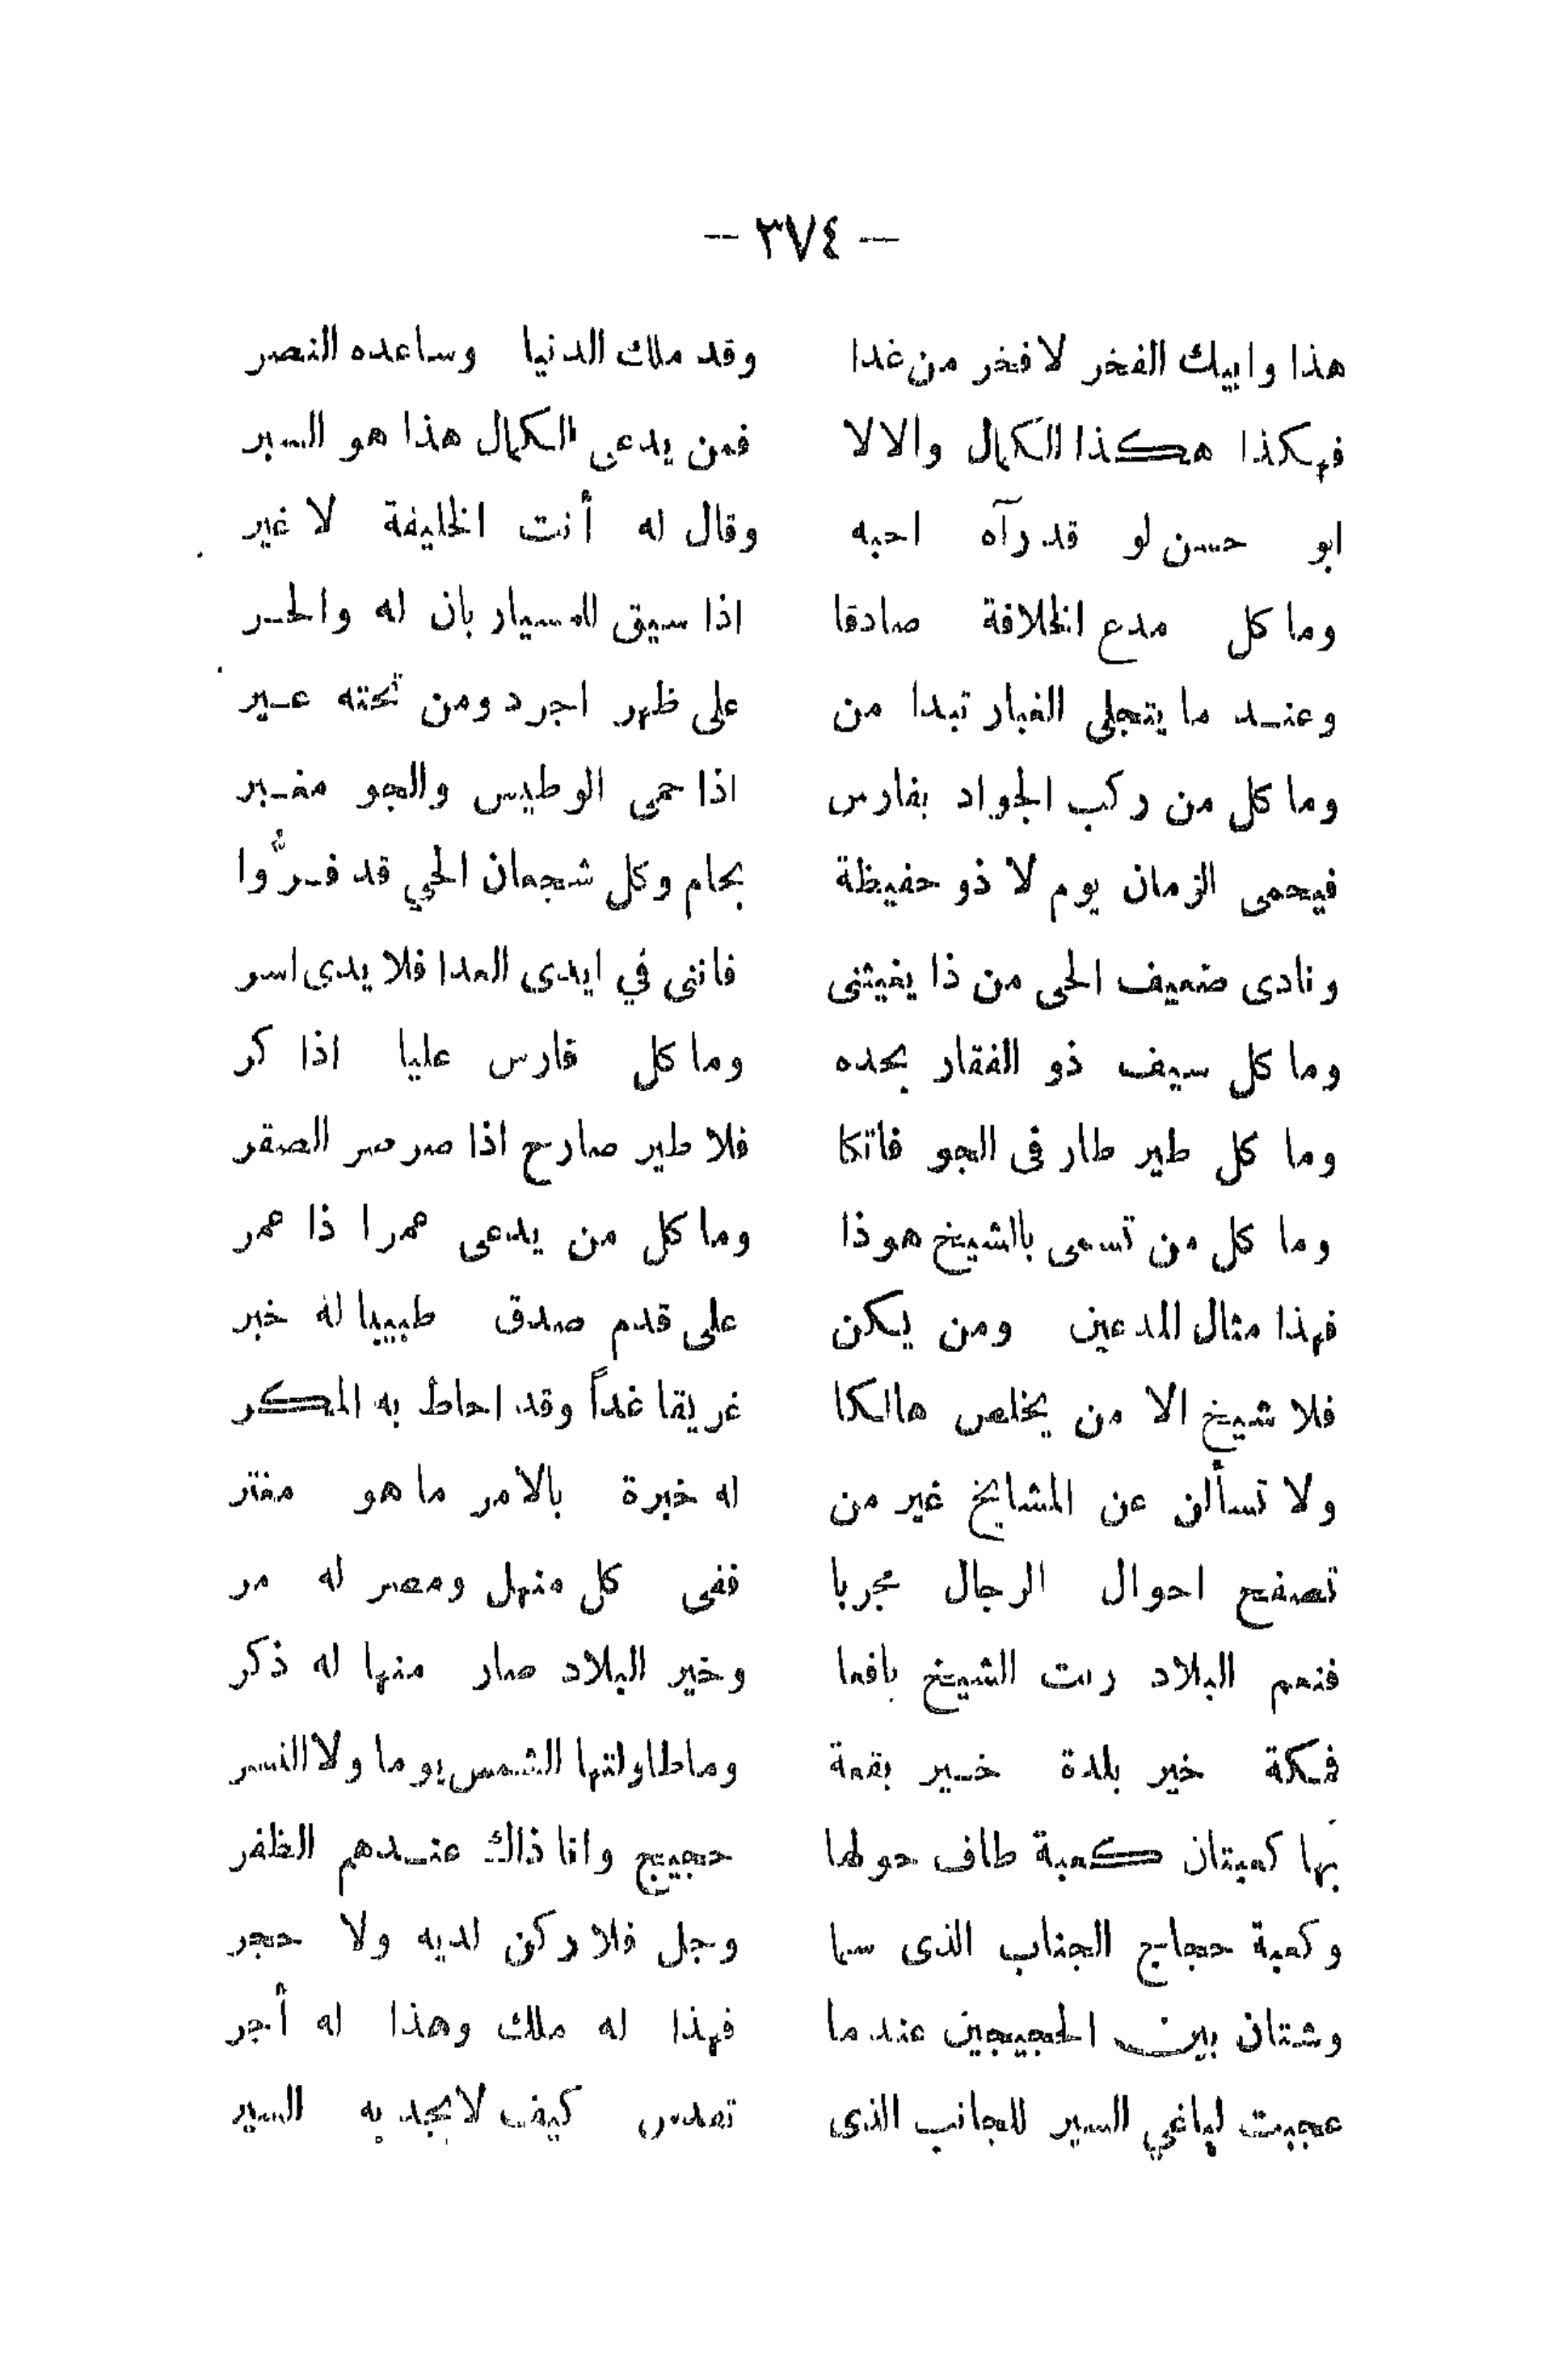 — ٣٧٤ —
هذا وابيك الفخر لا فخر من غدا وقد ملك الدنيا وساعده النصر
فهكذا هكذا الكمال والا لا فمن يدعى الكمال هذا هو السبر
ابو حسن لو قد رآه احبه وقال له أنت الخليفة لا غير
وما كل مدع الخلافة صادقا اذا سيق للمسيار بان له والحر
وعند ما يتجلى الغبار تبدا من على ظهر اجرد ومن تحته عير
وما كل من ركب الجواد بفارس اذا حمى الوطيس والجو مغبر
فيحمى الزمان يوم لا ذو حفيظة بحام وكل شجعان الحي قد فرُّوا
ونادى ضعيف الحى من ذا يغيثنى فاننى في ايدى العدا فلا يدى اسر
وما كل سيف ذو الفقار بحده وما كل فارس عليا اذا كر
وما كل طير طار فى الجو فاتكا فلا طير صارح اذا صرصر الصقر
وما كل من تسمى بالشيخ هوذا وما كل من يدعى عمرا ذا عمر
فهذا مثال المدعين ومن يكن على قدم صدق طبيبا له خبر
فلا شيخ الا من يخلص هالكا غريقا غداً وقد احاط به المكر
ولا تسألن عن المشايخ غير من له خبرة بالامر ما هو مغتر
تصفح احوال الرجال مجربا ففى كل منهل ومصر له مر
فنعم البلاد ربت الشيخ يافعا وخير البلاد صار منها له ذكر
فمكة خير بلدة خير بقعة وما طاولتها الشمس يوما ولا النسر
بها كعبتان كعبة طاف حولها حجيج وانا ذاك عندهم الظفر
وكعبة حجاج الجناب الذى سما وجل فلا ركن لديه ولا حجر
وشتان بين الحجيجين عند ما فهذا له ملك وهذا له أجر
عجبت لباغي السير للجانب الذى تقدس كيف لا يجد به السير